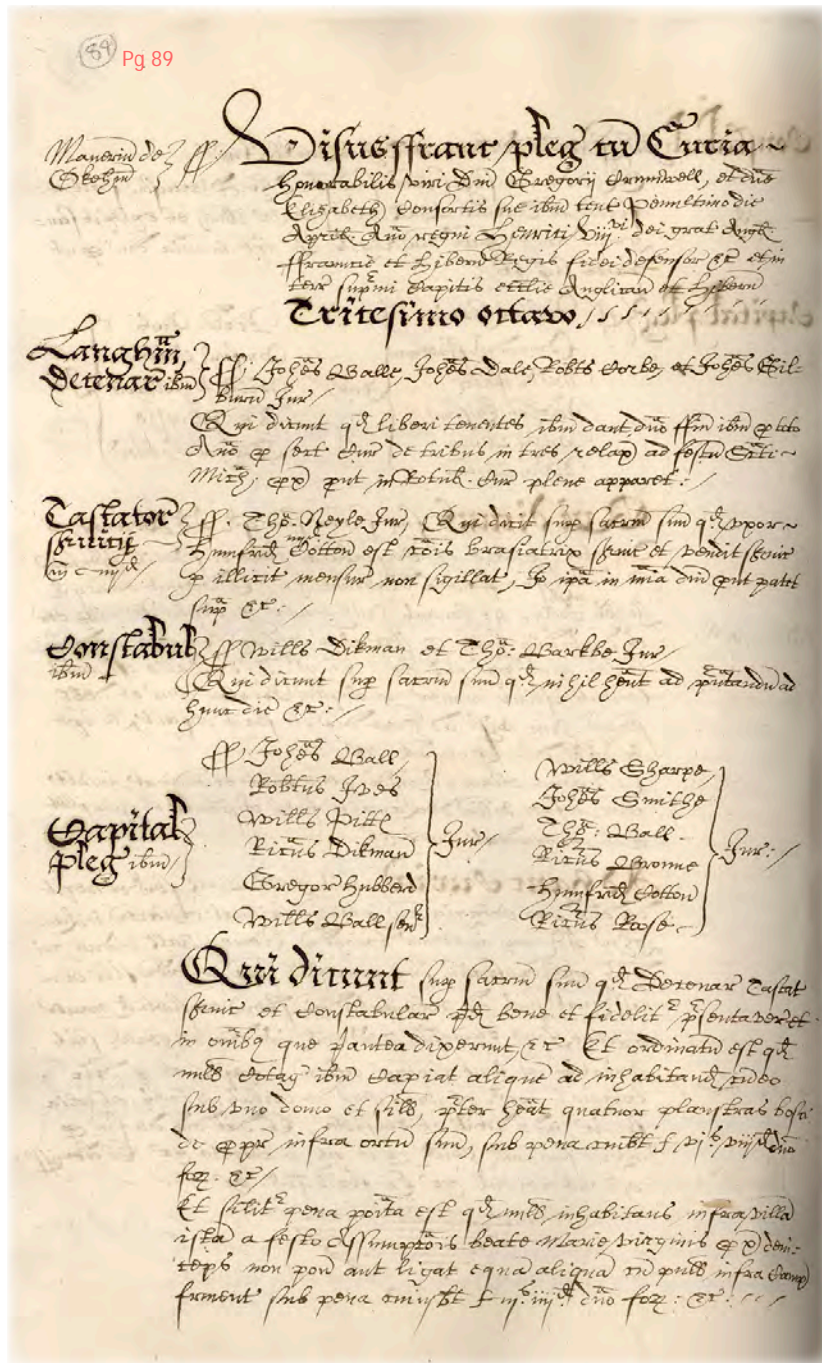 89 Pg. 89
Maneriu de Okehm ff. Visus ffranc pleg cu Curia
honorabilis viri Dni Gregorii Crumwell, et due
Elizabeth Consortis sue ibm tent Penultimo die
Aprilis Ano regni Henrici viii dei grat Angl
ffrancie et Hibern Regis fidei defensor &c et in
terr supmi capitis ecclie Anglican et Hibern
Tricesimo octavo
Langhm decenar ibm ff. Johes Balle, Johes Dale, Robts Corbe, et Johes Gil-
burn Jur
Qui dicunt qd liberi tenentes ibm dant dno ffin ibm p toto
Ano p sect Cur de tribus in tres relax ad festu Scti
Mich px put in Rotul Cur plene apparet
Tastator Seruicij ff. Tho: Neyle Jur, Qui dicit sup sacrm suu qd vxor
Humfrid Cotton est cois brasiatrix seruic et vendit seruic
p illicit mensur non sigillat, Jo ipa in mia dni put patet
supa &c
Constabul ibm ff Wills Dikman et Tho: Barkbe Jur
Qui dicunt sup sacrm suu qd nihil hent ad pntandu ad
hunc die &c
Capital pleg ibm
ff Johes Ball
Robtus Ives
Wills Pitte
Ricus Dikman
Gregor Hubberd
Wills Ball sen
Jur
Wills Sharpe
Johes Smithe
Tho: Ball
Ricus Bronne
Humfrid Cotton
Ricus Roose
Jur
Qui dicunt sup sacrm suu qd Decenar Tastat
seruic et Constabular pd bene et fidelit psentaver et
in oibq que pantea dixerunt, &c Et ordinatu est qd
nulls Cotag ibm capiat alique ad inhabitand cu eo
sub vno domo et sills, pter heat quatuor plaustras bosci
de ppr infra ortu suu, sub pena cuiuslt vi s viij d dno
for. &c
Et silit pena poita est qd nulls inhabitans infra villa
ista a festo Assumptois beate Marie virginis px dein-
ceps non pon aut ligat equa aliqua cu pulls infra Camp
frment sub pena cuiuslt iij s iiij d dno for: &c